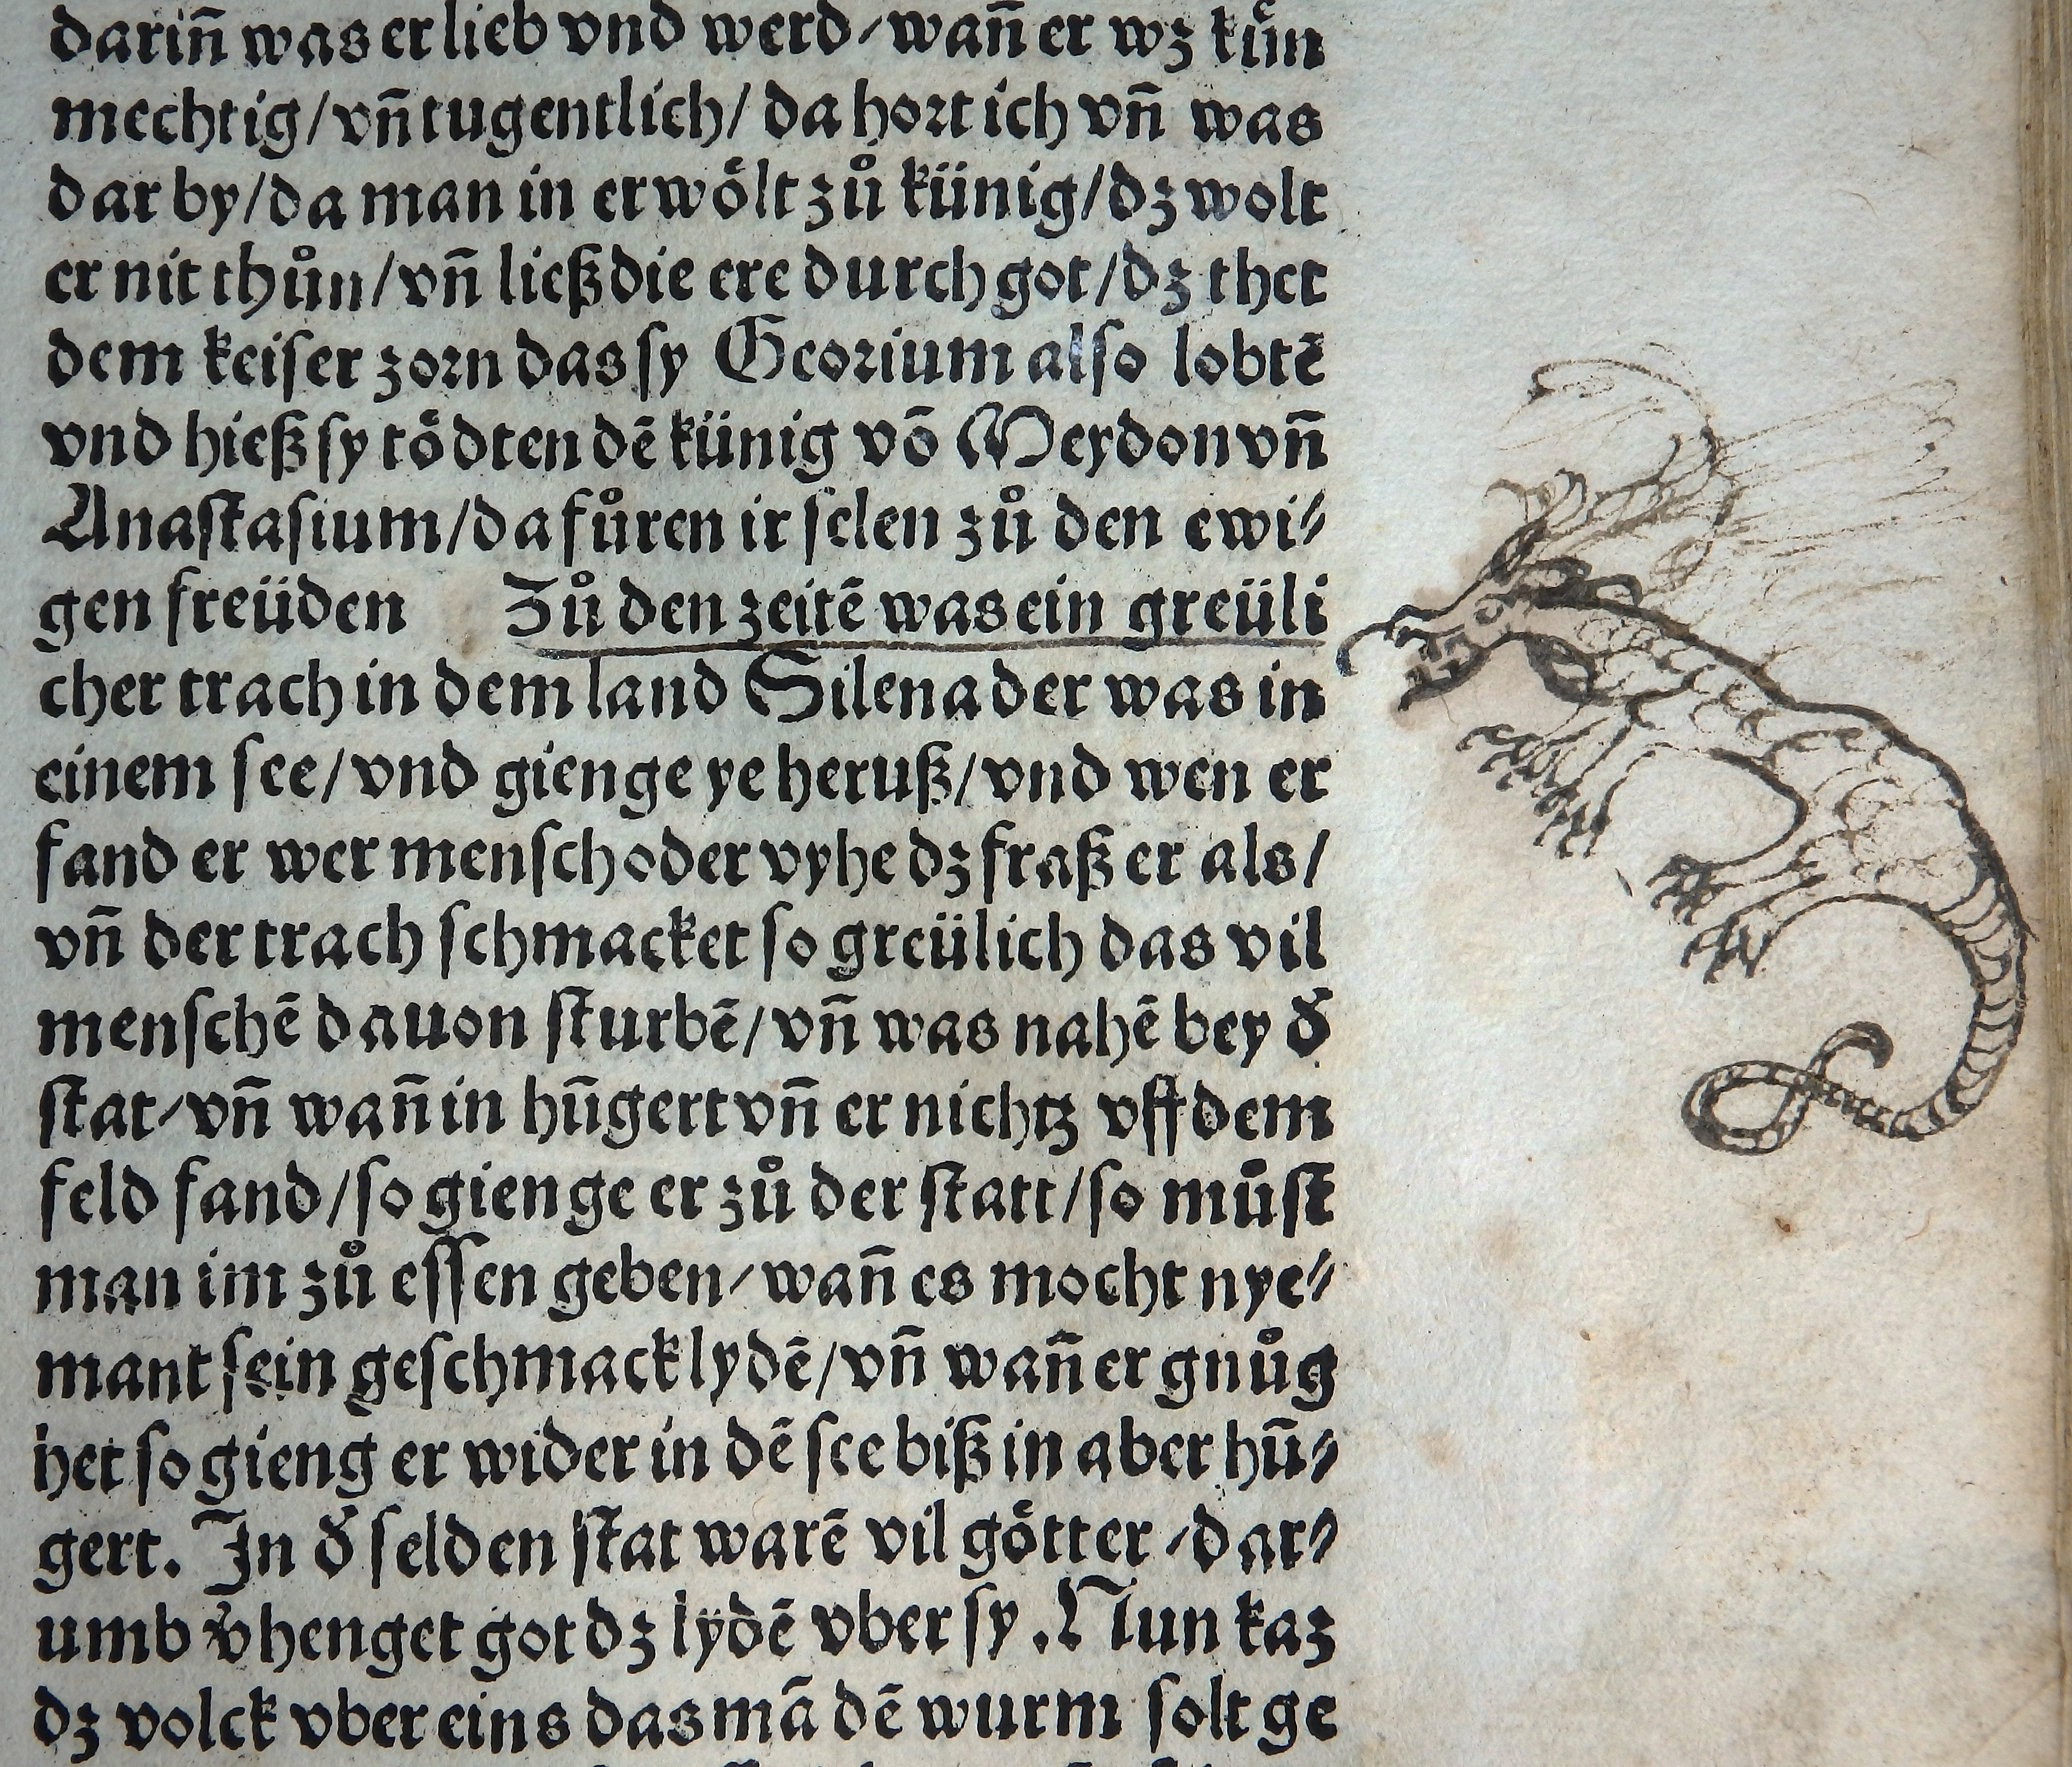 darin̄ was er lieb vnd werd/wan̄ er wz kuͤn
mechtig/vn̄ tugentlich/ da hort ich vn̄ was
dar by/da man in erwoͤlt zuͦ künig/dz wolt
er nit thuͦn/vn̄ ließ die ere durch got/dz thet
dem keiser zorn das sy Georium also lobtē
vnd hieß sy toͤdten dē künig vō Meydon vn̄
Anastasium/da fuͦren ir selen zuͦ den ewi⸗
gen freüden Zuͦ den zeitē was ein greüli
cher trach in dem land Silena der was in
einem see/vnd gienge ye heruß/vnd wen er
fand er wer mensch oder vyhe dz fraß er als/
vn̄ der trach schmacket so greülich das vil
menschē dauon sturbē/vn̄ was nahē bey dˀ
stat/vn̄ wan̄ in hūgert vn̄ er nichtz vff dem
feld fand/so gienge er zuͦ der statt/so muͦst
man im zuͦ essen geben/wan̄ es mocht nye⸗
mant sein geschmack lydē/vn̄ wan̄ er gnuͦg
het so gieng er wider in dē see biß in aber hū⸗
gert. In dˀ selden stat warē vil goͤtter/dar⸗
umb vˀhenget got dz lydē vber sy. Nun kaz
dz volck vber eins das mā dē wurm solt ge